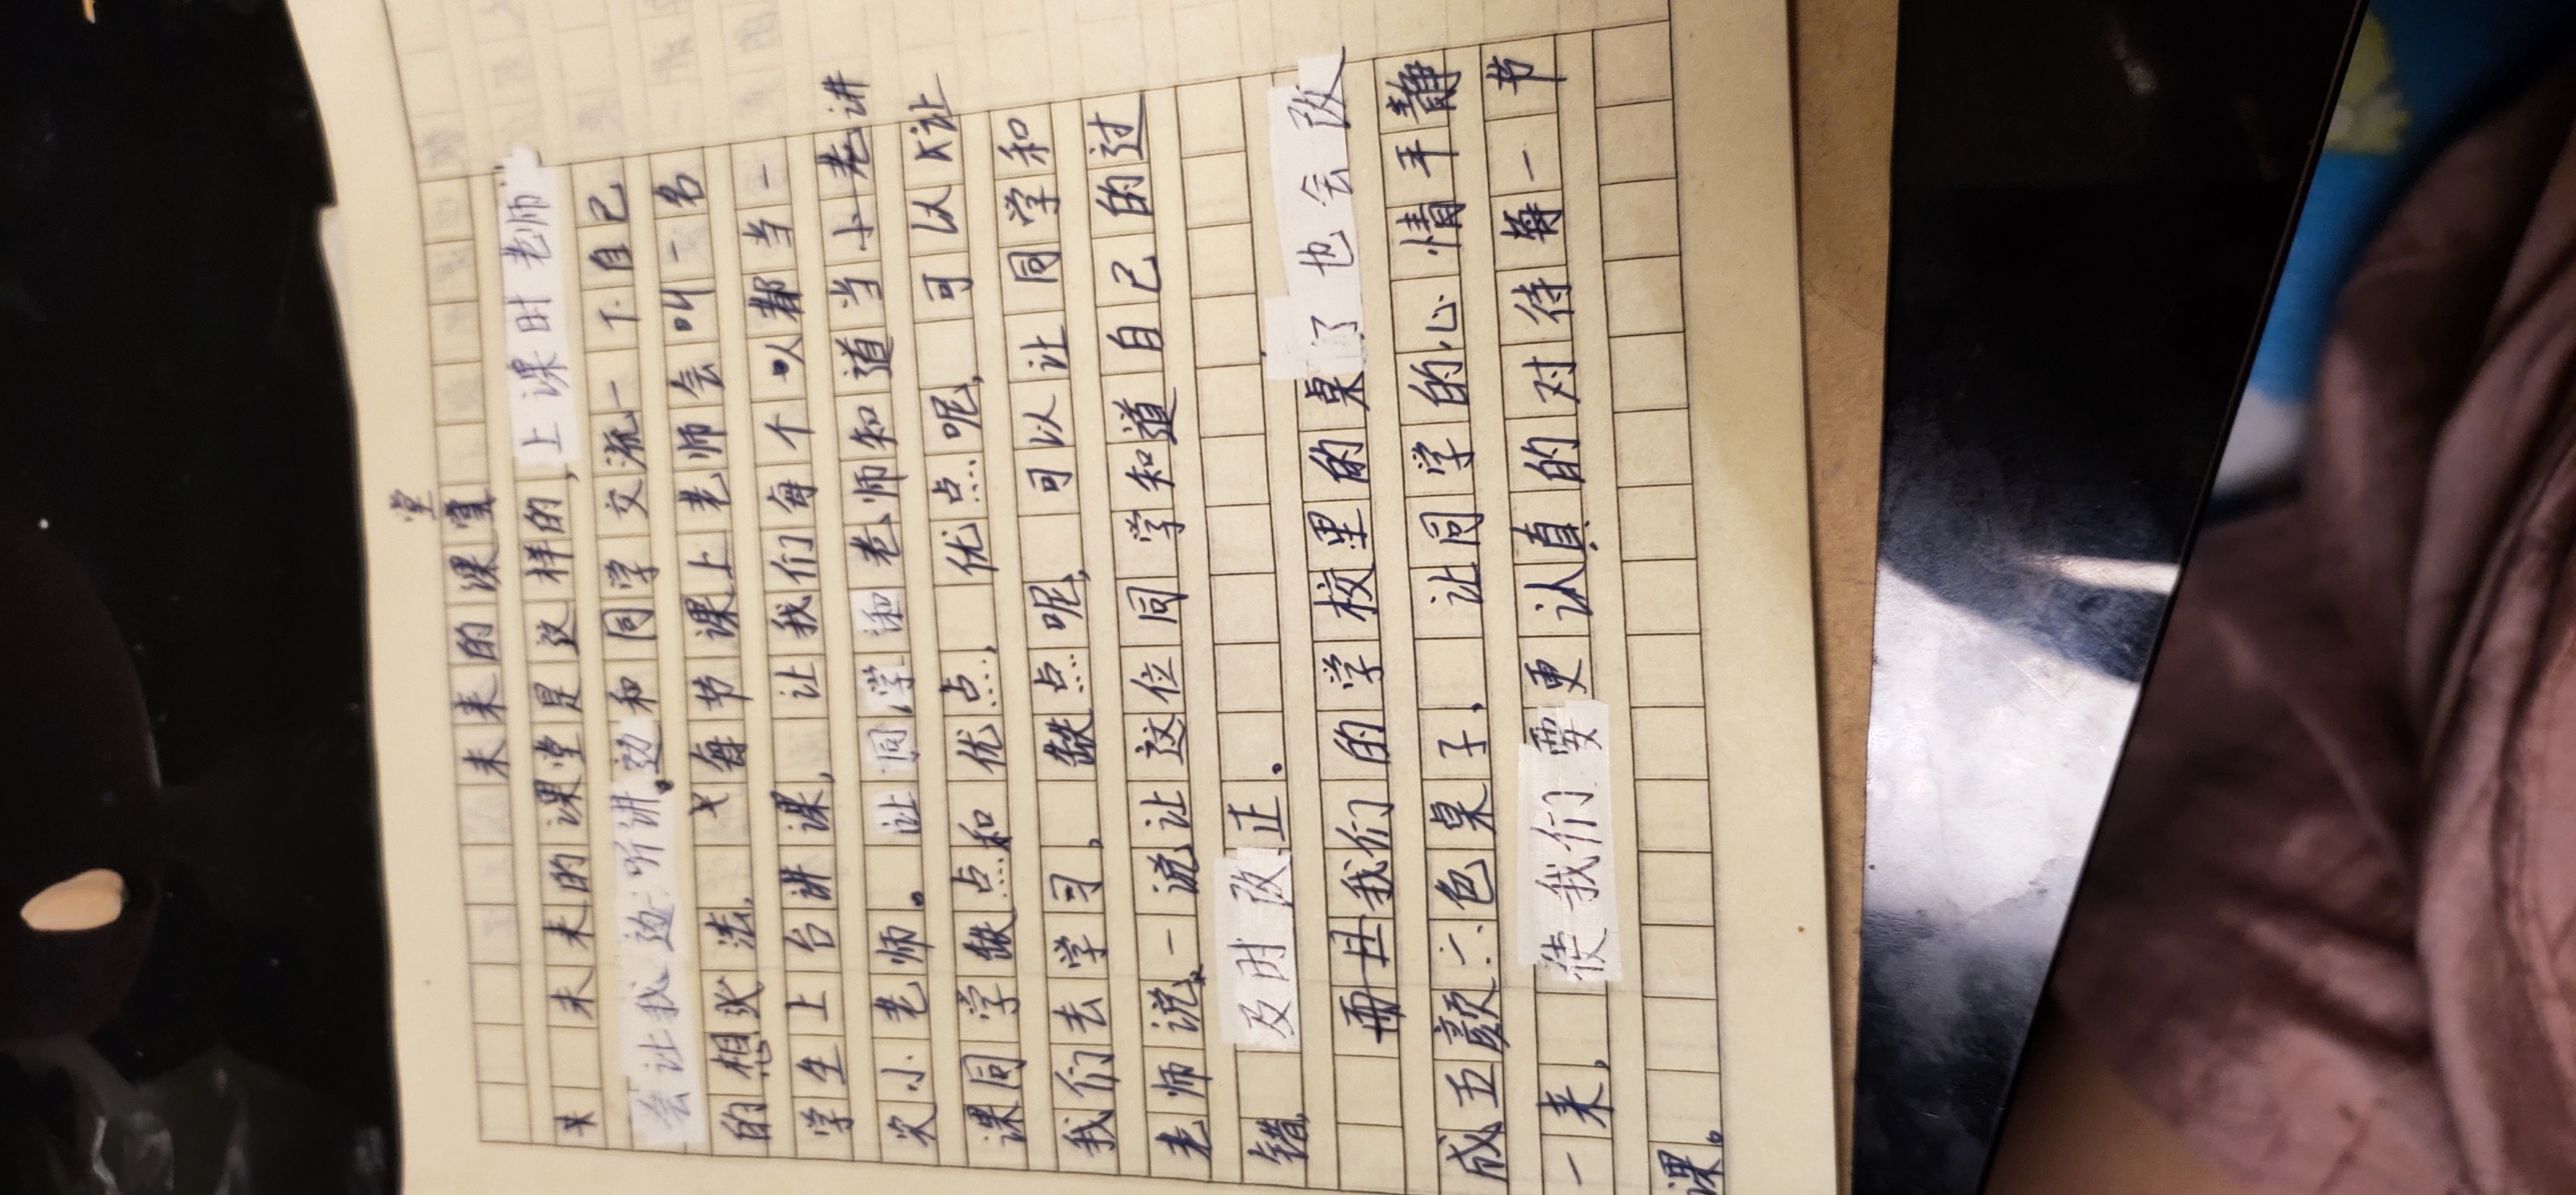 未来的课堂
堂
未来的课堂是这样的,上课时老师
会让我边听讲.边和同学交流一下自己
的想法,每节课上老师会叫一名
学生上台讲课,让我们每个人都当一
次小老师。让同学和老师知道当小老讲
课同学缺点和优点,优点呢,可以让
我们去学习,缺点呢,可以让同学和
老师说一说让这位同学知道自己的过
错,及时改正。
而且我们的学校里的桌了也会改
成五颜六色桌子,让同学的心情平静
一来,使我们要更认真的对待每一节
课。